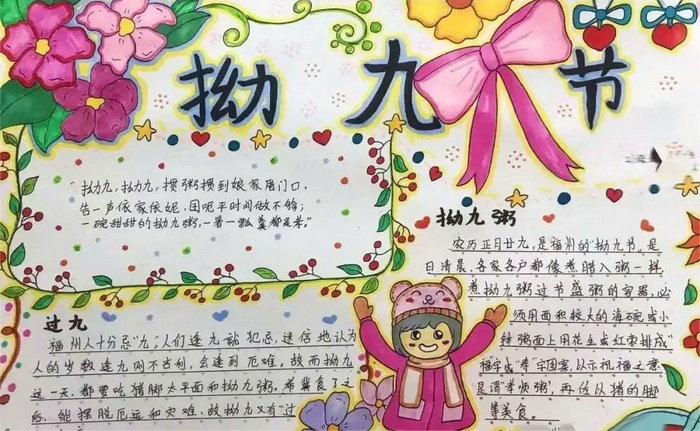 拗九节
"拗九,拗九,掼粥掼到娘家厝门口,
告一声依家依妮,囝呢平时间做不够;
一碗甜甜的拗九粥,一箸一瓢羹都是孝。"
拗九粥
农历正月廿九,是福州的"拗九节,是
日清晨、各家各户都像煮腊八粥一样,
煮拗九粥过节盛粥的容器,必
须用面积较大的海碗或小
钵粥面上用花生或红枣排成
"福"字或"孝"字图案,以示祝福之意
是谓"孝顺粥",再佐以猪的脚
等美食。
过九
福州人十分忌"九";人们逢九就犯忌,迷信地认为
人的岁数逢九则不吉利,会逢到厄难,故而拗九
这一天,都要吃猪脚太平面和拗九粥,希冀食了之
后,能摆脱厄运和灾难,故拗九又有"过